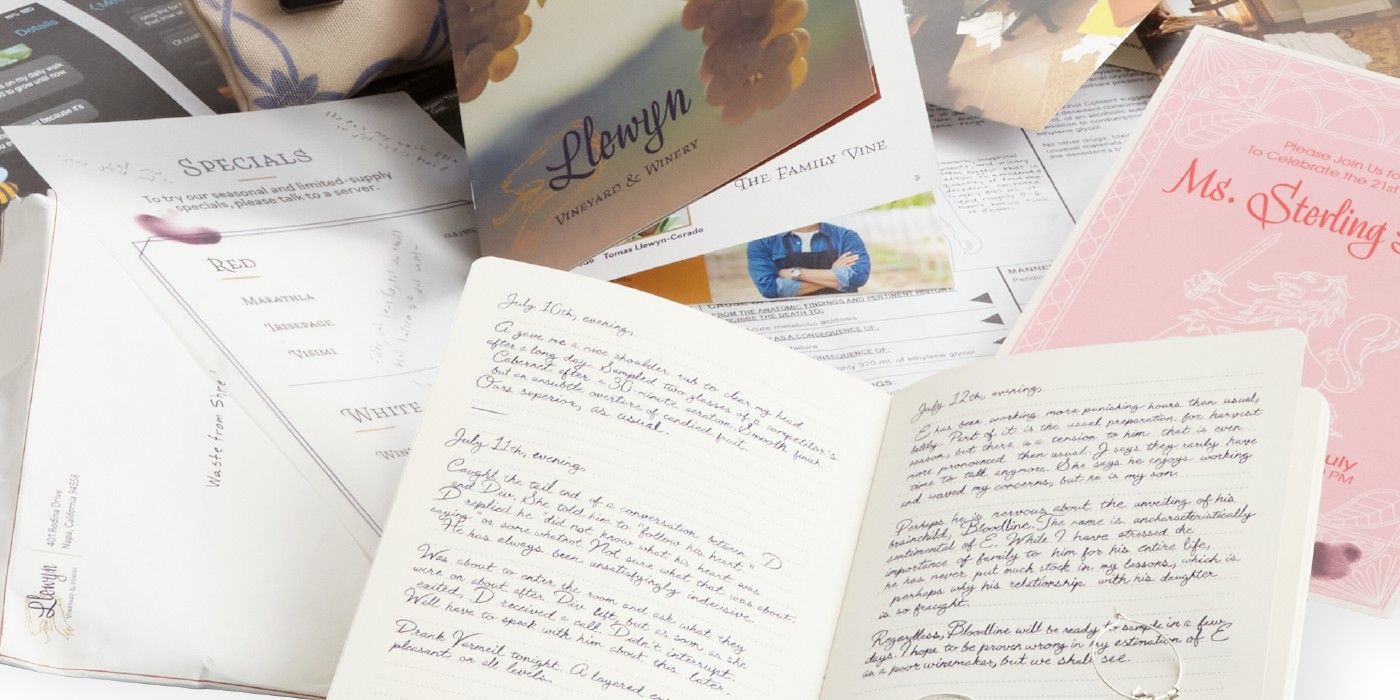 Details
on my daily walk
to grow until now.
because it's
SPECIALS
To try our seasonal and limited-supply
specials, please talk to a server.
RED
MARATHLA
TRIBEPAGE
VISIMI
WHITE
Waste from Shre
401 Rodina Drive
Napa, California 94558
Llewyn
VINEYARD & WINERY
Llewyn
VINEYARD & WINERY
THE FAMILY VINE
3
Tomas Llewyn-Corado
FROM THE ANATOMIC FINDINGS AND PERTINENT HISTORY
SCRIBE THE DEATH TO:
cute metabolic acidosis
AS A CONSEQUENCE OF:
failure
CONSEQUENCE OF:
370 mL of ethylene glycol
MANNE
Please Join Us fo
To Celebrate the 21st
Ms. Sterling's
uly
PM
July 10th, evening,
A gave me a nice shoulder rub to clear my head
after a long day. Sampled two glasses of a competitor's
Cabernet after a 30-minute aeration. Smooth finish
but an unsubtle overture of candied fruit.
Ours superior, as usual.
July 11th, evening,
Caught the tail end of a conversation between D
and Div. She told him to "follow his heart." D
replied he "did not know what his heart was
saying" or some whatnot. Not sure what that was about.
He has always been unsatisfyingly indecisive.
Was about to enter the room and ask what they
were on about after Div left, but as soon as she
exited, D received a call. Didn't interrupt.
Will have to speak with him about this later.
Drank Vermeil tonight. A layered
pleasant on all levels.
July 12th, evening,
E has been working more punishing hours than usual,
lately. Part of it is the usual preparation for harvest
season, but there is a tension to him that is even
more pronounced than usual. J says they rarely have
time to talk anymore. She says he enjoys working
and waved my concerns, but he is my son.
Perhaps he is nervous about the unveiling of his
brainchild, Bloodline. The name is uncharacteristically
sentimental of E. While I have stressed the
importance of family to him for his entire life,
he has never put much stock in my lessons, which is
perhaps why his relationship with his daughter
is so fraught.
Regardless, Bloodline will be ready to sample in a few
days. I hope to be proven wrong in my estimation of E
as a poor winemaker, but we shall see.